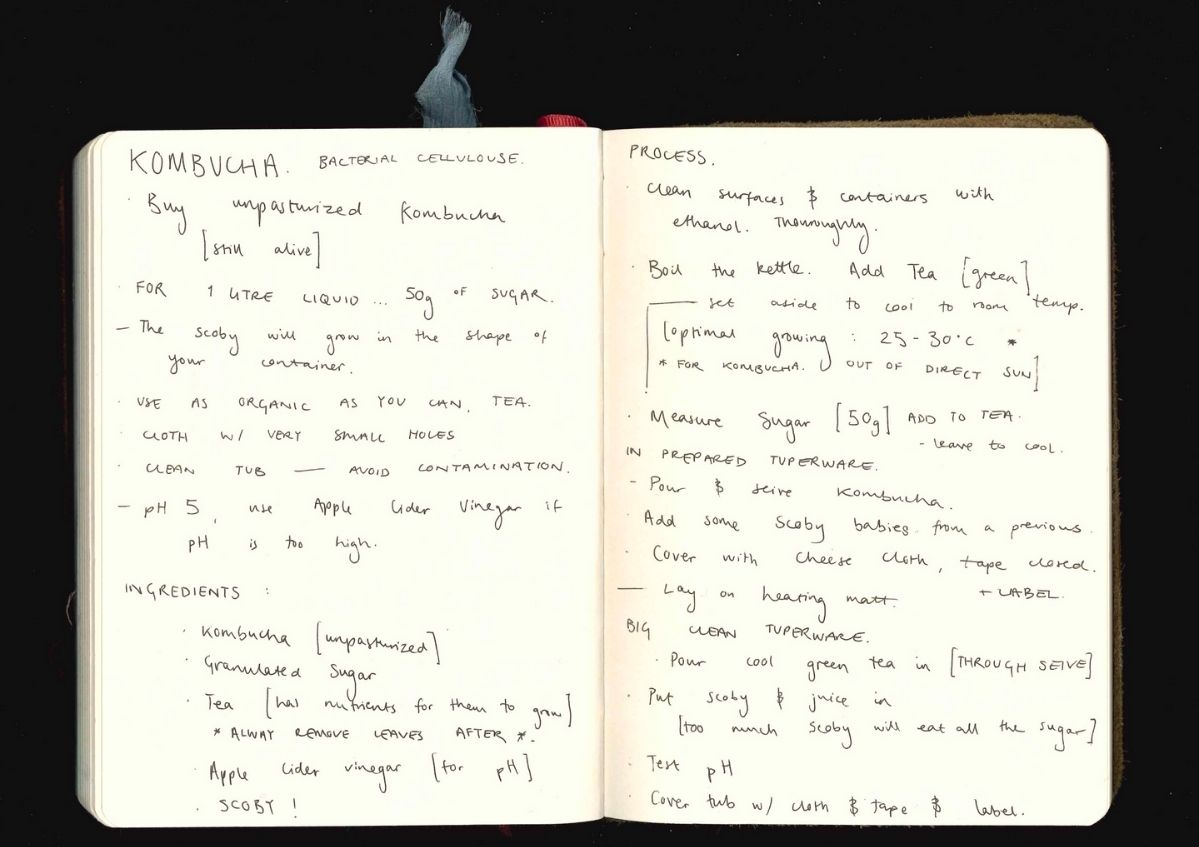 KOMBUCHA. BACTERIAL CELLULOUSE.
· Buy unpasturized Kombucha
[still alive]
· FOR 1 LITRE LIQUID ... 50g OF SUGAR.
— The scoby will grow in the shape of
your container.
· USE AS ORGANIC AS YOU CAN, TEA.
· CLOTH W/ VERY SMALL HOLES
· CLEAN TUB — AVOID CONTAMINATION.
— pH 5, use Apple Cider Vinegar if
pH is too high.
INGREDIENTS :
· Kombucha [unpasturized]
· Granulated Sugar
· Tea [has nutrients for them to grow]
* ALWAY REMOVE LEAVES AFTER *.
· Apple Cider vinegar [for pH]
· SCOBY !
PROCESS.
· Clean surfaces & containers with
ethanol. Thouroughly.
· Boil the kettle. Add Tea [green]
— set aside to cool to room temp.
[optimal growing : 25 - 30°C *
* FOR KOMBUCHA. OUT OF DIRECT SUN]
· Measure Sugar [50g] ADD TO TEA.
- leave to cool.
IN PREPARED TUPERWARE.
- Pour & seive Kombucha.
· Add some Scoby babies from a previous.
· Cover with cheese cloth, tape closed.
+ LABEL.
— Lay on heating matt.
BIG CLEAN TUPERWARE.
· Pour cool green tea in [THROUGH SEIVE]
· Put scoby & juice in
[too much Scoby will eat all the sugar]
· Test pH
· Cover tub w/ cloth & tape & label.